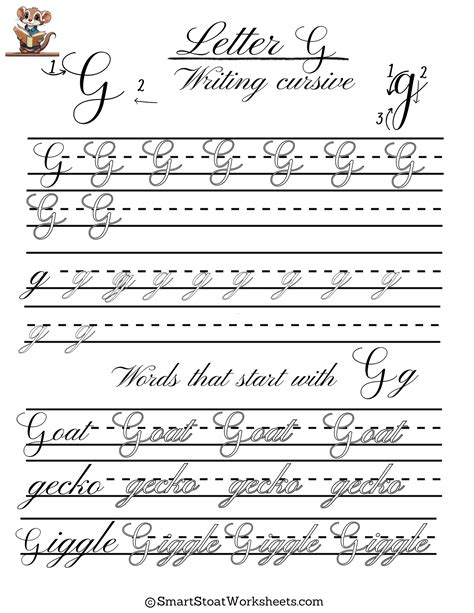 Letter G
Writing cursive
1 G 2
1 g 2
3
G G G G G G G G
G G
g g g g g g g g g g
g g
Words that start with G g
Goat Goat Goat Goat
gecko gecko gecko gecko
Giggle Giggle Giggle Giggle
©SmartStoatWorksheets.com